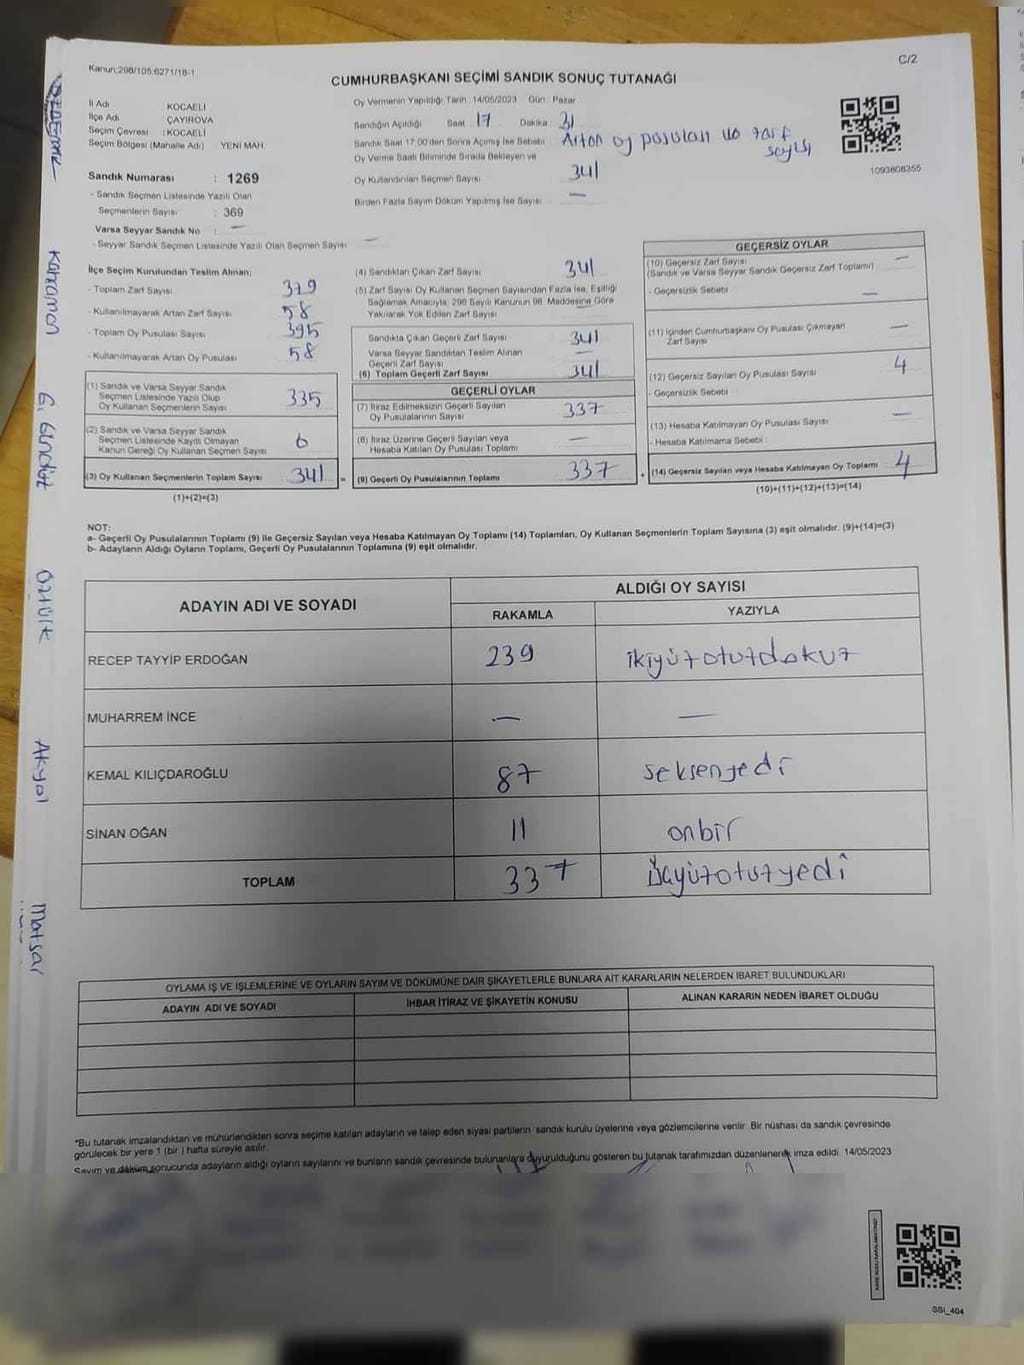 Kanun;298/105;6271/18-1
C/2
CUMHURBAŞKANI SEÇİMİ SANDIK SONUÇ TUTANAĞI
İl Adı : KOCAELİ
İlçe Adı : ÇAYIROVA
Seçim Çevresi : KOCAELİ
Seçim Bölgesi (Mahalle Adı) YENİ MAH.
Sandık Numarası : 1269
- Sandık Seçmen Listesinde Yazılı Olan
Seçmenlerin Sayısı : 369
Varsa Seyyar Sandık No : —
- Seyyar Sandık Seçmen Listesinde Yazılı Olan Seçmen Sayısı : —
Oy Vermenin Yapıldığı Tarih: 14/05/2023 Gün: Pazar
Sandığın Açıldığı Saat 17 Dakika 31
Sandık Saat 17:00'den Sonra Açılmış İse Sebebi: Artan oy pusulası ve zarf
sayısı
Oy Verme Saati Bitiminde Sırada Bekleyen ve
Oy Kullandırılan Seçmen Sayısı 341
Birden Fazla Sayım Döküm Yapılmış İse Sayısı —
1093808355
İlçe Seçim Kurulundan Teslim Alınan;
- Toplam Zarf Sayısı 379
- Kullanılmayarak Artan Zarf Sayısı 58
- Toplam Oy Pusulası Sayısı 395
- Kullanılmayarak Artan Oy Pusulası 58
(1) Sandık ve Varsa Seyyar Sandık
Seçmen Listesinde Yazılı Olup
Oy Kullanan Seçmenlerin Sayısı 335
(2) Sandık ve Varsa Seyyar Sandık
Seçmen Listesinde Kayıtlı Olmayan
Kanun Gereği Oy Kullanan Seçmen Sayısı 6
(3) Oy Kullanan Seçmenlerin Toplam Sayısı 341 =
(1)+(2)=(3)
(4) Sandıktan Çıkan Zarf Sayısı 341
(5) Zarf Sayısı Oy Kullanan Seçmen Sayısından Fazla İse, Eşitliği
Sağlamak Amacıyla; 298 Sayılı Kanunun 98. Maddesine Göre
Yakılarak Yok Edilen Zarf Sayısı
Sandıkta Çıkan Geçerli Zarf Sayısı 341
Varsa Seyyar Sandıktan Teslim Alınan
Geçerli Zarf Sayısı —
(6) Toplam Geçerli Zarf Sayısı 341
GEÇERLİ OYLAR
(7) İtiraz Edilmeksizin Geçerli Sayılan
Oy Pusulalarının Sayısı 337
(8) İtiraz Üzerine Geçerli Sayılan veya
Hesaba Katılan Oy Pusulası Toplamı —
(9) Geçerli Oy Pusulalarının Toplamı 337 +
GEÇERSİZ OYLAR
(10) Geçersiz Zarf Sayısı —
(Sandık ve Varsa Seyyar Sandık Geçersiz Zarf Toplamı)
- Geçersizlik Sebebi —
(11) İçinden Cumhurbaşkanı Oy Pusulası Çıkmayan
Zarf Sayısı —
(12) Geçersiz Sayılan Oy Pusulası Sayısı 4
- Geçersizlik Sebebi
(13) Hesaba Katılmayan Oy Pusulası Sayısı —
- Hesaba Katılmama Sebebi :
(14) Geçersiz Sayılan veya Hesaba Katılmayan Oy Toplamı 4
(10)+(11)+(12)+(13)=(14)
NOT:
a- Geçerli Oy Pusulalarının Toplamı (9) ile Geçersiz Sayılan veya Hesaba Katılmayan Oy Toplamı (14) Toplamları, Oy Kullanan Seçmenlerin Toplam Sayısına (3) eşit olmalıdır. (9)+(14)=(3)
b- Adayların Aldığı Oyların Toplamı, Geçerli Oy Pusulalarının Toplamına (9) eşit olmalıdır.
ADAYIN ADI VE SOYADI
ALDIĞI OY SAYISI
RAKAMLA YAZIYLA
RECEP TAYYİP ERDOĞAN 239 ikiyüzotuzdokuz
MUHARREM İNCE — —
KEMAL KILIÇDAROĞLU 87 seksenyedi
SİNAN OĞAN 11 onbir
TOPLAM 337 üçyüzotuzyedi
OYLAMA İŞ VE İŞLEMLERİNE VE OYLARIN SAYIM VE DÖKÜMÜNE DAİR ŞİKAYETLERLE BUNLARA AİT KARARLARIN NELERDEN İBARET BULUNDUKLARI
ADAYIN ADI VE SOYADI İHBAR İTİRAZ VE ŞİKAYETİN KONUSU ALINAN KARARIN NEDEN İBARET OLDUĞU
*Bu tutanak imzalandıktan ve mühürlendikten sonra seçime katılan adayların ve talep eden siyasi partilerin sandık kurulu üyelerine veya gözlemcilerine verilir. Bir nüshası da sandık çevresinde
görülecek bir yere 1 (bir) hafta süreyle asılır.
Sayım ve döküm sonucunda adayların aldığı oyların sayılarını ve bunların sandık çevresinde bulunanlara duyurulduğunu gösteren bu tutanak tarafımızdan düzenlenerek imza edildi. 14/05/2023
SSİ_404
Kahraman
Öztürk
Akyol